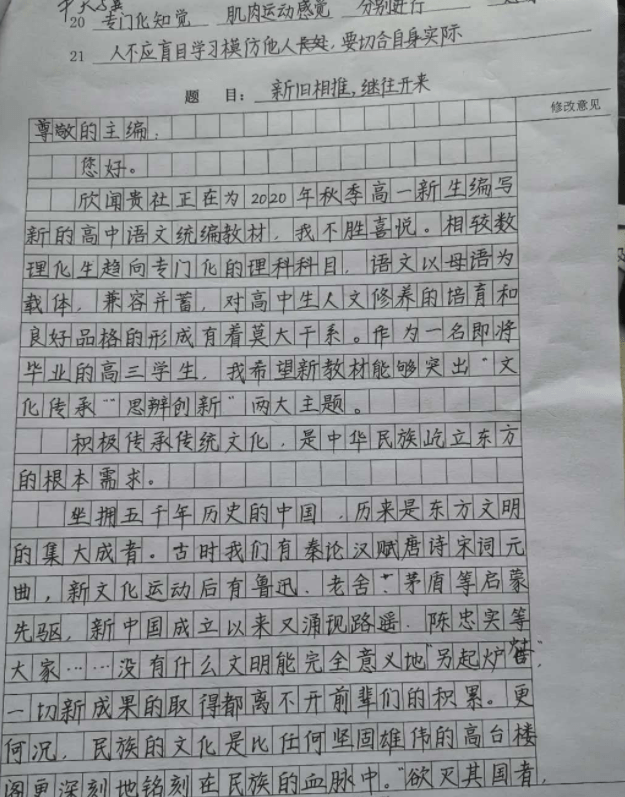 20 专门化知觉 肌肉运动感觉 分别进行
21 人不应盲目学习模仿他人,要切合自身实际
题 目: 新旧相推,继往开来
修改意见
尊敬的主编:
您好。
欣闻贵社正在为2020年秋季高一新生编写
新的高中语文统编教材,我不胜喜悦。相较数
理化生趋向专门化的理科科目,语文以母语为
载体,兼容并蓄,对高中生人文修养的培育和
良好品格的形成有着莫大干系。作为一名即将
毕业的高三学生,我希望新教材能够突出“文
化传承”“思辨创新”两大主题。
积极传承传统文化,是中华民族屹立东方
的根本需求。
坐拥五千年历史的中国,历来是东方文明
的集大成者。古时我们有秦论汉赋唐诗宋词元
曲,新文化运动后有鲁迅、老舍、茅盾等启蒙
先驱,新中国成立以来又涌现路遥、陈忠实等
大家……没有什么文明能完全意义地“另起炉灶”,
一切新成果的取得都离不开前辈们的积累。更
何况,民族的文化是比任何坚固雄伟的高台楼
阁更深刻地铭刻在民族的血脉中。“欲灭其国者,